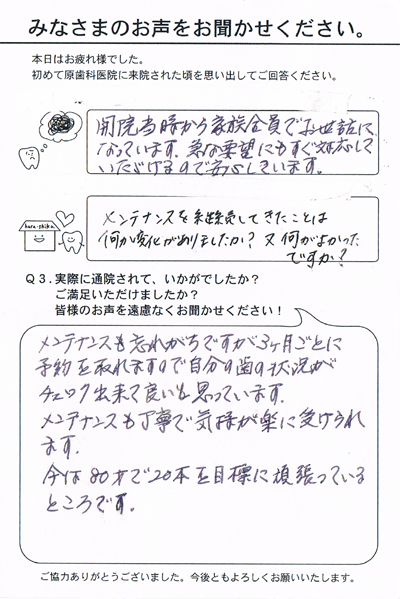 みなさまのお声をお聞かせください。
本日はお疲れ様でした。
初めて原歯科医院に来院された頃を思い出してご回答ください。
開院当時から家族全員でお世話に
なっています。急な要望にもすぐ対応して
いただけるので安心しています。
hara-shika
メンテナンスを継続してきたことは
何か変化がありましたか? 又何がよかった
ですか?
Q3.実際に通院されて、いかがでしたか?
ご満足いただけましたか?
皆様のお声を遠慮なくお聞かせください!
メンテナンスも忘れがちですが3ヶ月ごとに
予約を取れますので自分の歯の状況が
チェック出来て良いと思っています。
メンテナンスも丁寧で気持が楽に受けられ
ます。
今は80才で20本を目標に頑張っている
ところです。
ご協力ありがとうございました。今後ともよろしくお願いいたします。